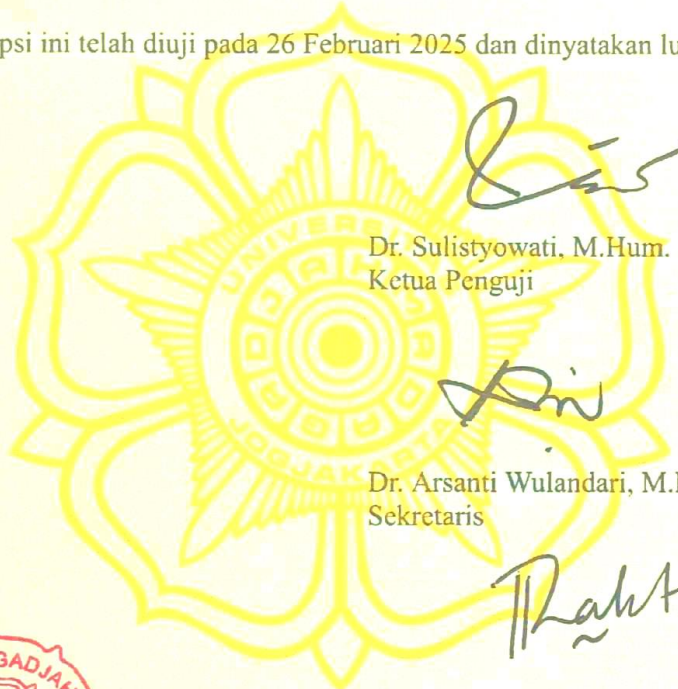 psi ini telah diuji pada 26 Februari 2025 dan dinyatakan lu
Dr. Sulistyowati, M.Hum.
Ketua Penguji
Dr. Arsanti Wulandari, M.
Sekretaris
UNIVERSI
GADJAH MADA
JOGJAKARTA
GADJA